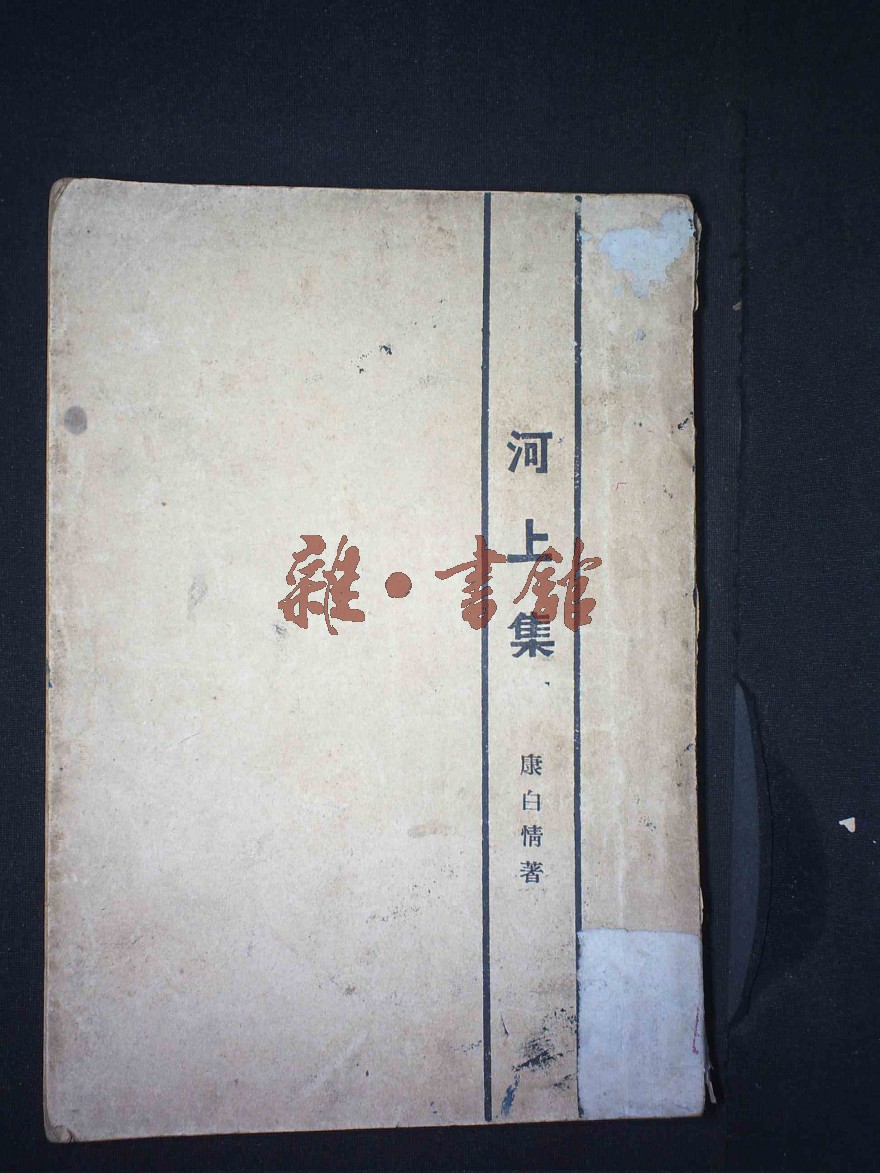 河上集
康白情著
雜·書館